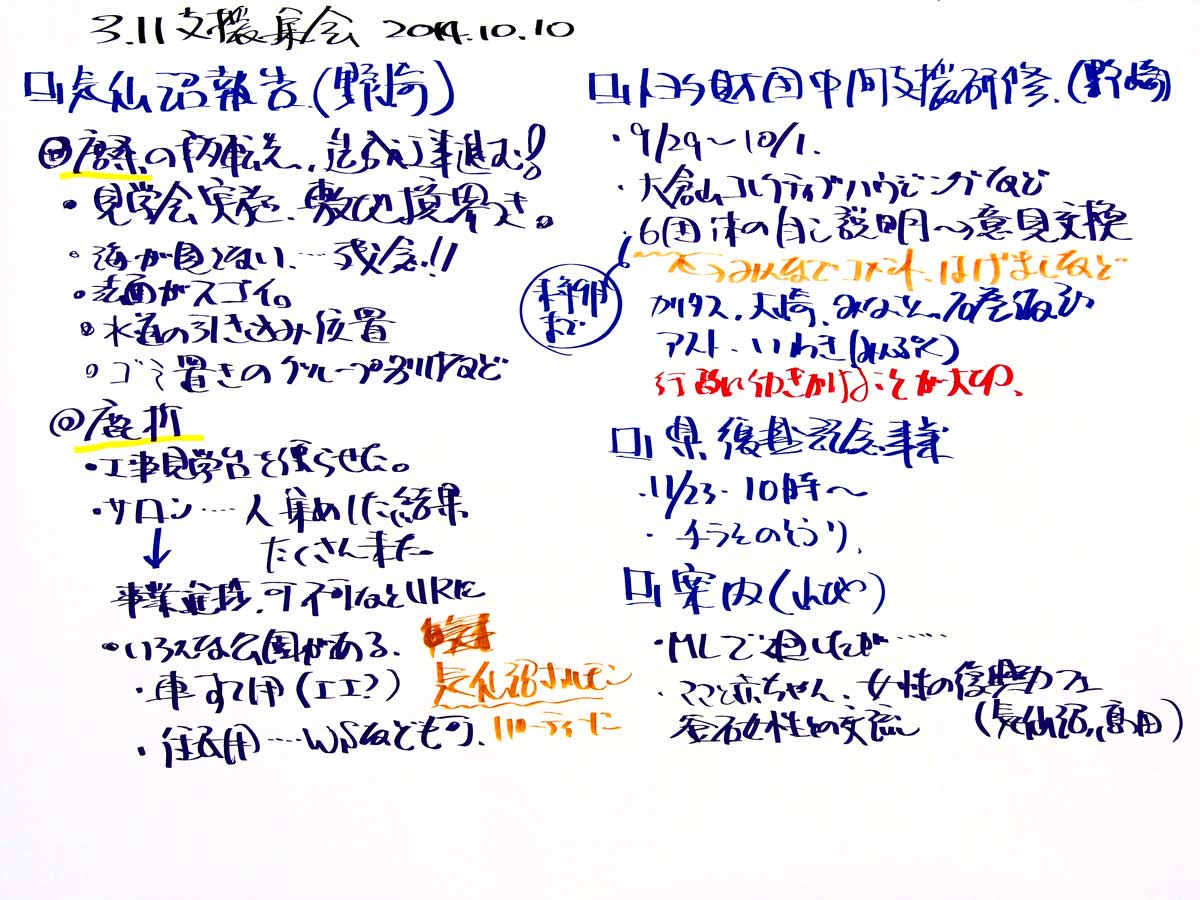 3.11支援集会 2014.10.10
口気仙沼報告(野崎)
唐桑の移転先、造成工事進む!
・見学会実施、敷地境界でき。
・海が見えない…残念!!
・法面がスゴイ。
・水道の引き込み位置
・ゴミ置きのグループ分けなど
◎鹿折
・工事見学台を くらせた。
・サロン…人集めした結果
↓ たくさん来た
事業進捗、 などURに
・いろんな公園がある、
・車 用(エエ?)
・住民用…WSなども可、
気仙沼ホルモン
パーティーだ
口トヨタ財団中間支援研修、(野崎)
・9/29〜10/1.
・大倉山コレクティブハウジングなど
・6団体の自己説明〜意見交換
みんなでコメント、はげましなど
まで
カリタス、大崎、みなと、石巻仮設
アスト、いわき(みんぷく)
行政に働きかけることが大切、
口県復興祈念事業
・11/23・10時〜
・チラシのとうり、
口案内( )
・MLで したが……
・ママと赤ちゃん、女性の復興カフェ
釜石女性との交流 (気仙沼、高田)